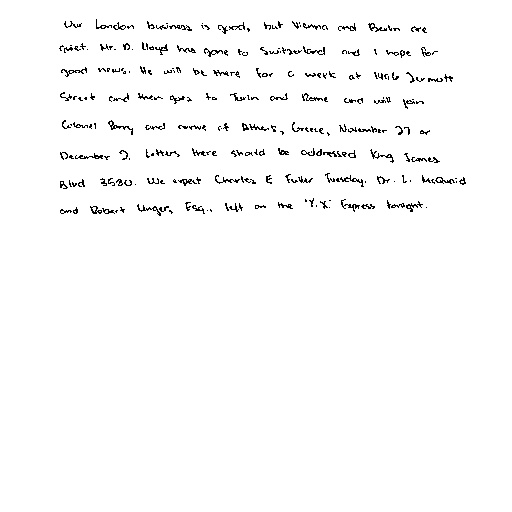 Our London business is good, but Vienna and Berlin are
quiet. Mr. D. Lloyd has gone to Switzerland and I hope for
good news. He will be there for a week at 1496 Zermott
Street and then goes to Turin and Rome and will join
Colonel Parry and arrive at Athens, Greece, November 27 or
December 2. Letters there should be addressed King James
Blvd 3580. We expect Charles E Fuller Tuesday. Dr. L. McQuaid
and Robert Unger, Esq., left on the "Y.X." Express tonight.